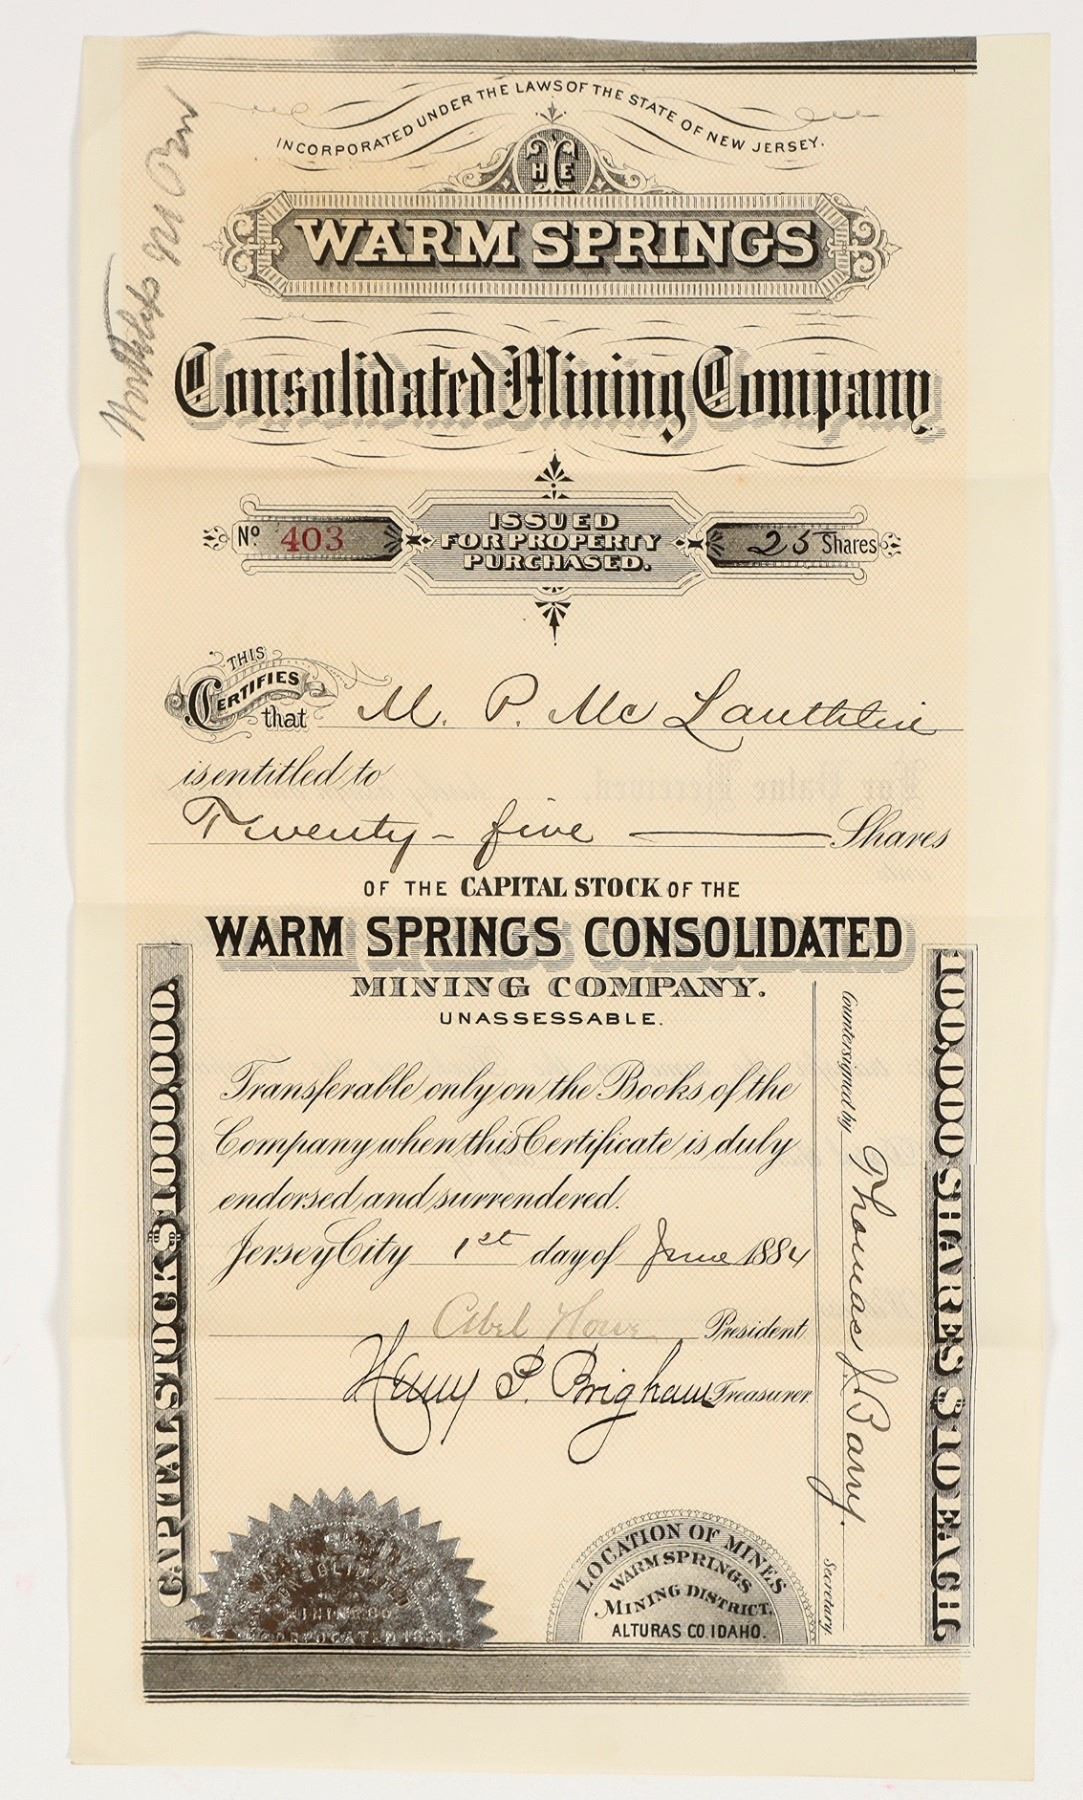 INCORPORATED UNDER THE LAWS OF THE STATE OF NEW JERSEY.
THE
WARM SPRINGS
Consolidated Mining Company
No. 403
ISSUED
FOR PROPERTY
PURCHASED.
25 Shares
THIS
CERTIFIES
that M. P. Mc Lauthlin
is entitled to
Twenty-five Shares
OF THE CAPITAL STOCK OF THE
WARM SPRINGS CONSOLIDATED
MINING COMPANY.
UNASSESSABLE.
Transferable only on the Books of the
Company when this Certificate is duly
endorsed and surrendered.
Jersey City 1st day of June 1884
Abel Howe President
Henry P. Brigham Treasurer
Countersigned by Thomas J. Barry. Secretary.
CAPITAL STOCK $1,000,000.
100,000 SHARES $10 EACH
CONSOLIDATED
MINING CO.
INCORPORATED 1881.
LOCATION OF MINES
WARM SPRINGS
MINING DISTRICT,
ALTURAS CO. IDAHO.